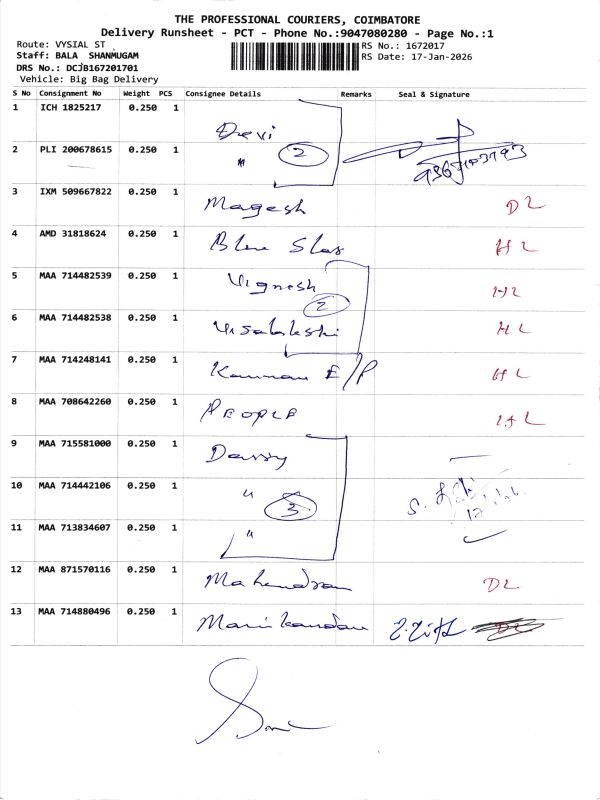 THE PROFESSIONAL COURIERS, COIMBATORE
Delivery Runsheet - PCT - Phone No.:9047080280 - Page No.:1
Route: VYSIAL ST
RS No.: 1672017
Staff: BALA SHANMUGAM
RS Date: 17-Jan-2026
DRS No.: DCJB167201701
Vehicle: Big Bag Delivery
S No Consignment No Weight PCS Consignee Details Remarks Seal & Signature
1 ICH 1825217 0.250 1 Devi
2 PLI 200678615 0.250 1 " 2
3 IXM 509667822 0.250 1 Magesh DL
4 AMD 31818624 0.250 1 Blue Star HL
5 MAA 714482539 0.250 1 Vignesh HL
2
6 MAA 714482538 0.250 1 Visalakshi HL
7 MAA 714248141 0.250 1 Kannan E/P HL
8 MAA 708642260 0.250 1 PEOPLE HL
9 MAA 715581000 0.250 1
10 MAA 714442106 0.250 1 " 3
11 MAA 713834607 0.250 1 "
12 MAA 871570116 0.250 1 Mahendran DL
13 MAA 714880496 0.250 1 Manikandan